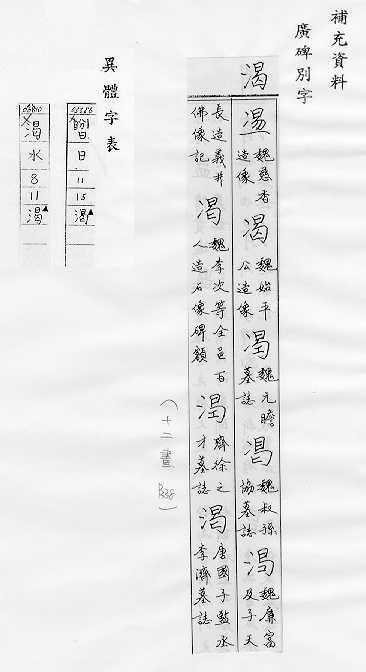 補充資料
廣碑別字
渴
魏慈香造像
渴 魏始平公造像
渴 魏元瞻墓誌
魏叔孫協墓誌
渴 魏廉富及子天
長造義井佛像記
渴 魏李次等全邑百人造石像碑額
渴 齊徐之才墓誌
渴 唐國子監丞李濟墓誌
(十二畫 B38)
異體字表
日 11 15 渴▲
渴 水 8 11 渴▲